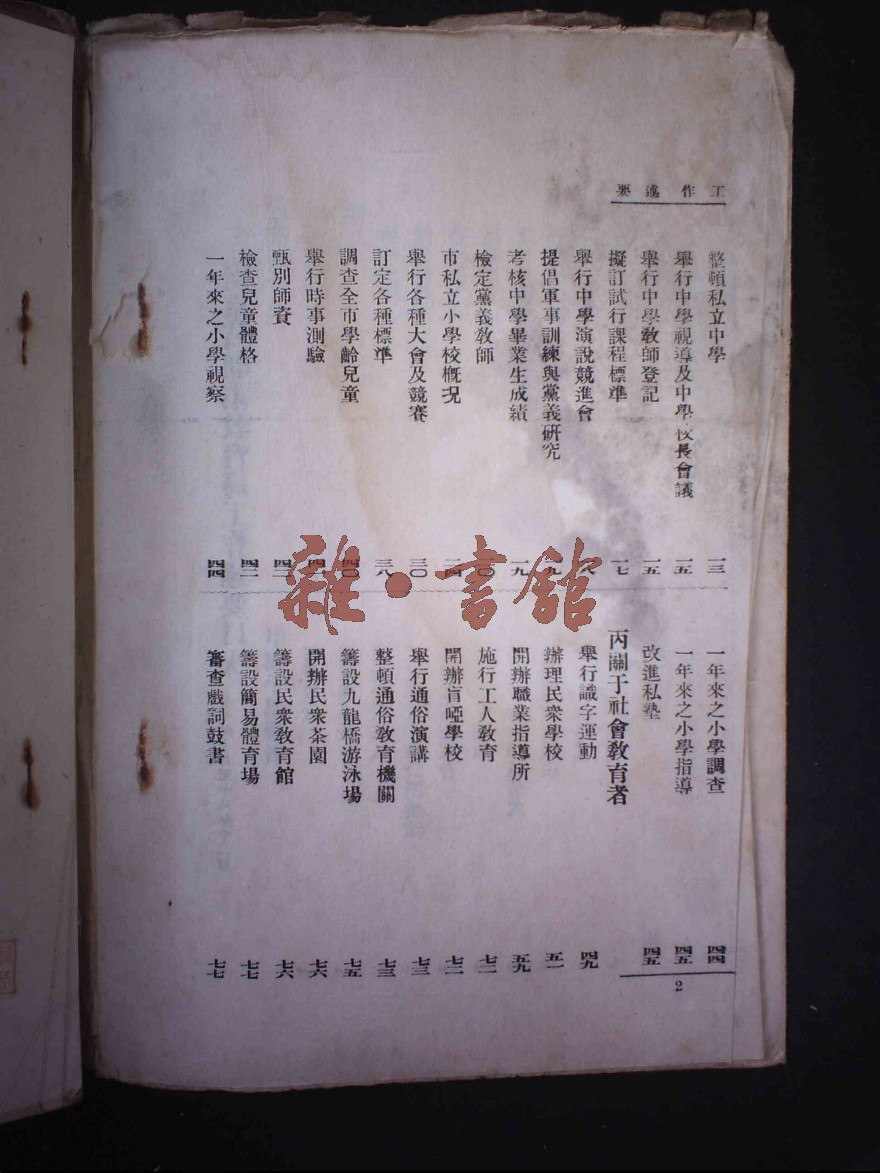 工作述要
整頓私立中學 一三
舉行中學視導及中學校長會議 一五
舉行中學教師登記 一五
擬訂試行課程標準 一七
舉行中學演說競進會
提倡軍事訓練與黨義研究
考核中學畢業生成績 一九
檢定黨義教師
市私立小學校概況 二四
舉行各種大會及競賽 三〇
訂定各種標準 三八
調查全市學齡兒童 四〇
舉行時事測驗
甄別師資
檢查兒童體格 四二
一年來之小學視察 四四
一年來之小學調查 四四
一年來之小學指導 四五
改進私塾 四五
丙關于社會教育者
舉行識字運動 四九
辦理民衆學校 五一
開辦職業指導所 五九
施行工人教育 七二
開辦盲啞學校 七二
舉行通俗演講 七三
整頓通俗教育機關 七三
籌設九龍橋游泳場 七五
開辦民衆茶園 七六
籌設民衆教育館 七六
籌設簡易體育場 七七
審查戲詞鼓書 七七
2
雜·書館